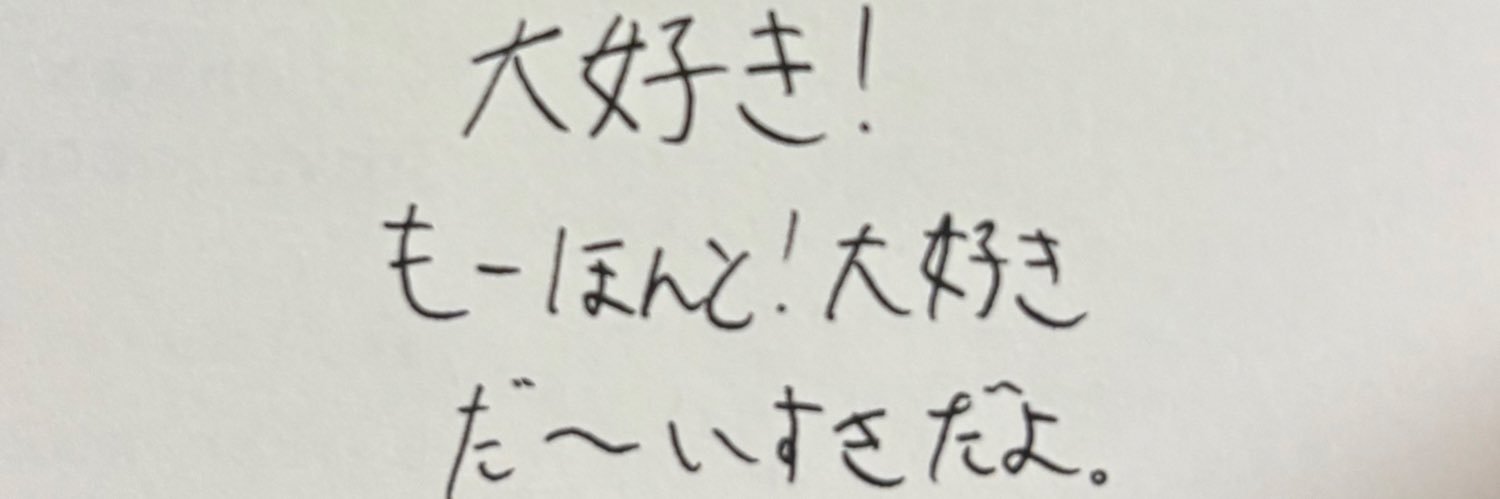 大好き!
もーほんと!大好き
だ〜いすきだよ。